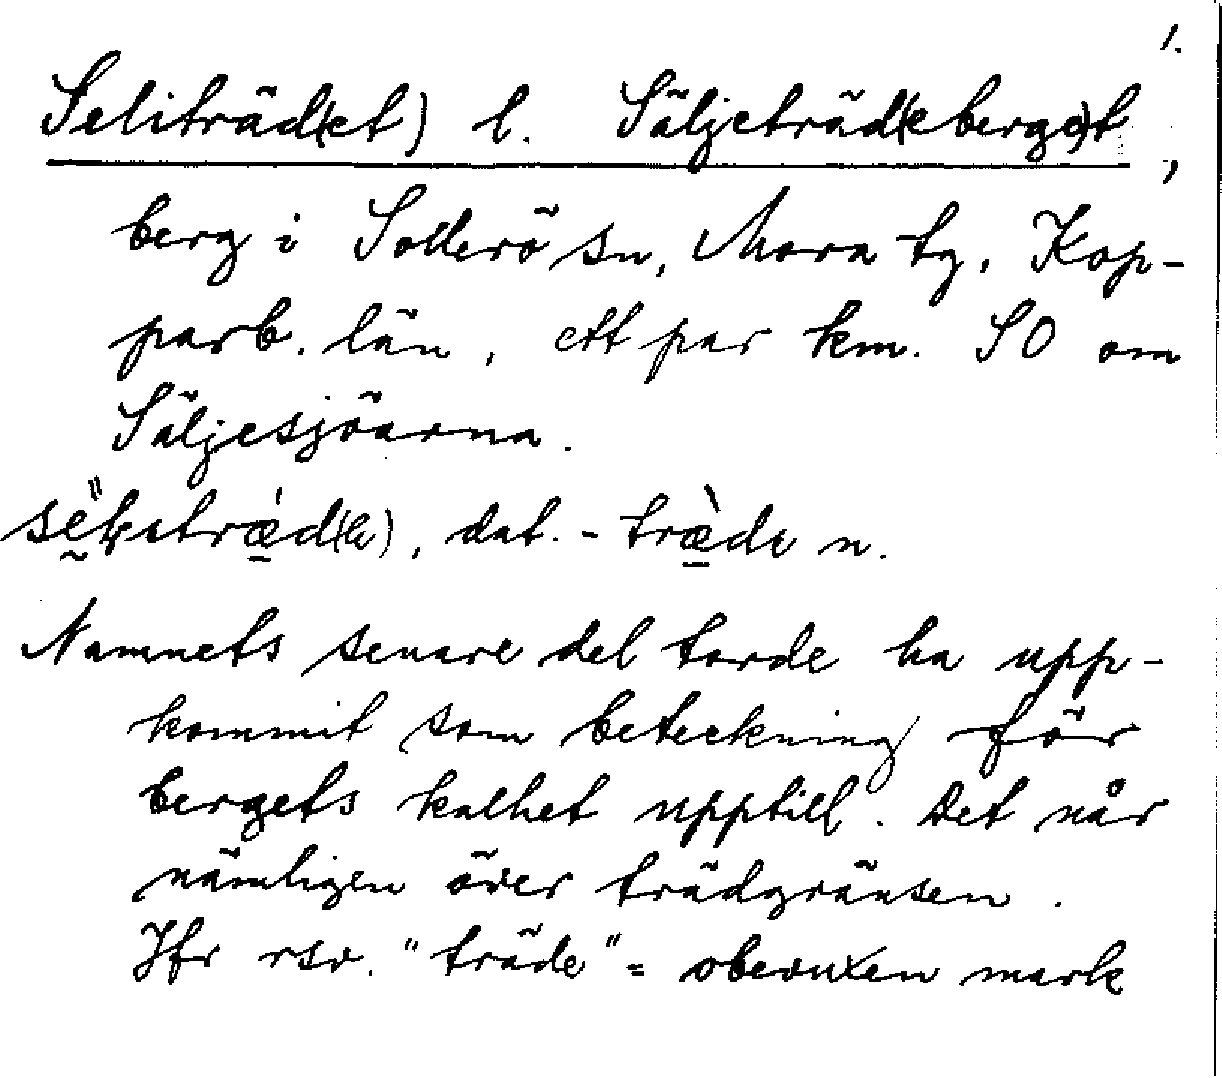 1.
Seliträd(et) l. Säljeträd(eberge)t,
berg i Sollerö sn, Mora tg, Kop-
parb. län, ett par km. SO om
Säljesjöarna.
dat. -træ̀de n.
Namnets senare del torde ha upp-
kommit som beteckning för
bergets kalhet upptill. Det når
nämligen över trädgränsen.
Jfr rsv. "träde" = obevuxen mark